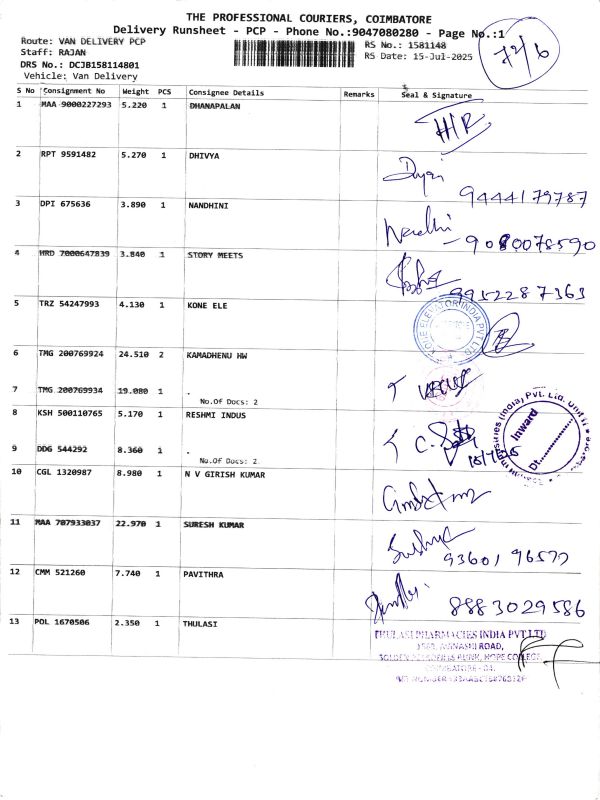 THE PROFESSIONAL COURIERS, COIMBATORE
Delivery Runsheet - PCP - Phone No.:9047080280 - Page No.:1
72/6
Route: VAN DELIVERY PCP
RS No.: 1581148
Staff: RAJAN
RS Date: 15-Jul-2025
DRS No.: DCJB158114801
Vehicle: Van Delivery
S No Consignment No Weight PCS Consignee Details Remarks Seal & Signature
1 MAA 9000227293 5.220 1 DHANAPALAN
2 RPT 9591482 5.270 1 DHIVYA
9444179787
3 DPI 675636 3.890 1 NANDHINI
Nandhi
4 HRD 7000647839 3.840 1 STORY MEETS
9952287363
5 TRZ 54247993 4.130 1 KONE ELE
KONE ELEVATOR INDIA PVT LTD
6 TMG 200769924 24.510 2 KAMADHENU HW
7 TMG 200769934 19.080 1 .
No.Of Docs: 2
8 KSH 500110765 5.170 1 RESHMI INDUS
(India) Pvt. Ltd. Unit II
Inward
Dt.
9 DDG 544292 8.360 1 .
No.Of Docs: 2
10 CGL 1320987 8.980 1 N V GIRISH KUMAR
11 MAA 707933037 22.970 1 SURESH KUMAR
12 CMM 521260 7.740 1 PAVITHRA
8883029586
13 POL 1670506 2.350 1 THULASI
THULASI PHARMACIES INDIA PVT LTD
ROAD,
HOPE COLLEGE,
COIMBATORE